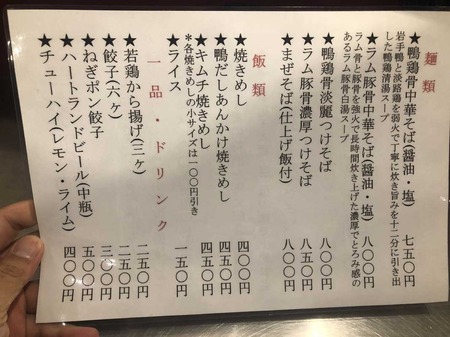 麺類
★鴨鶏骨中華そば(醤油・塩) 七五〇円
岩手鴨と淡路鶏を弱火で丁寧に炊き旨みを十二分に引き出
した鴨鶏清湯スープ
★ラム豚骨中華そば(醤油・塩) 八〇〇円
ラム骨と豚骨を強火で長時間炊き上げた濃厚でとろみ感の
あるラム豚骨白湯スープ
★鴨鶏骨淡麗つけそば 八〇〇円
★ラム豚骨濃厚つけそば 八五〇円
★まぜそば(仕上げ飯付) 八〇〇円
飯類
★焼きめし 四〇〇円
★鴨だしあんかけ焼きめし 四五〇円
★キムチ焼きめし 四五〇円
*各焼きめしの小サイズは一〇〇円引き
★ライス 一五〇円
一品・ドリンク
★若鶏から揚げ(三ヶ) 二五〇円
★餃子(六ヶ) 二五〇円
★ねぎポン餃子 三〇〇円
★ハートランドビール(中瓶) 五〇〇円
★チューハイ(レモン・ライム) 四〇〇円